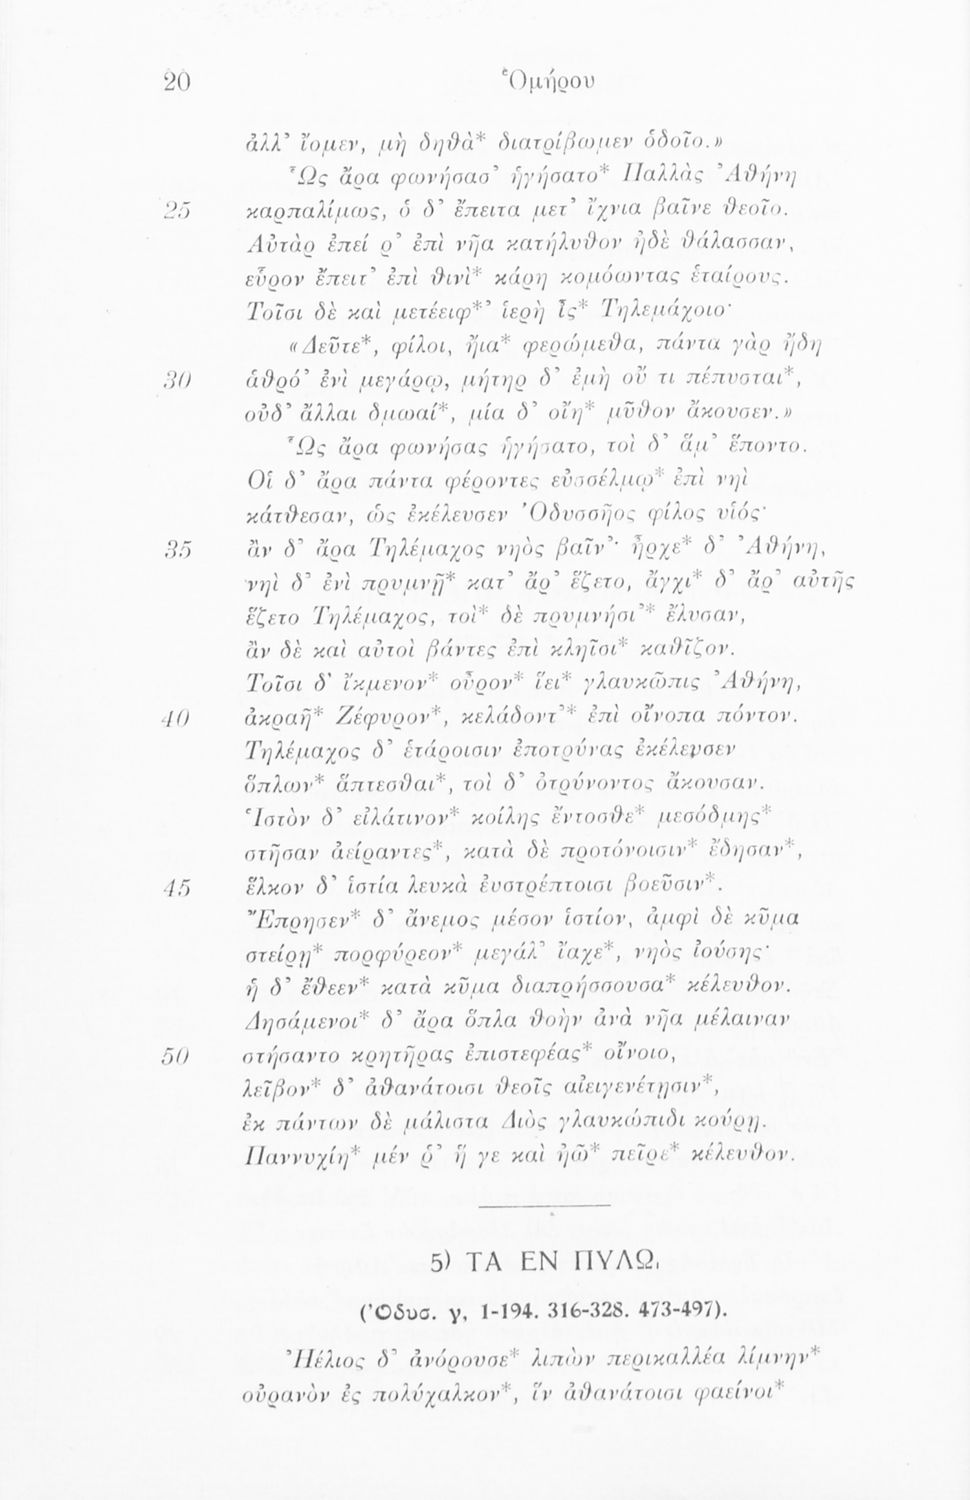 20 Ὁμήρου
ἀλλ’ ἴομεν, μὴ δηθὰ* διατρίβωμεν ὁδοῖο.»
Ὣς ἄρα φωνήσασ’ ἡγήσατο* Παλλὰς Ἀθήνη
25 καρπαλίμως, ὁ δ’ ἔπειτα μετ’ ἴχνια βαῖνε θεοῖο.
Αὐτὰρ ἐπεί ῥ’ ἐπὶ νῆα κατήλυθον ἠδὲ θάλασσαν,
εὗρον ἔπειτ’ ἐπὶ θινὶ* κάρη κομόωντας ἑταίρους.
Τοῖσι δὲ καὶ μετέειφ*’ ἱερὴ ἲς* Τηλεμάχοιο·
«Δεῦτε*, φίλοι, ἤια* φερώμεθα, πάντα γὰρ ἤδη
30 ἁθρό’ ἐνὶ μεγάρῳ, μήτηρ δ’ ἐμὴ οὔ τι πέπυσται*,
οὐδ’ ἄλλαι δμωαί*, μία δ’ οἴη* μῦθον ἄκουσεν.»
Ὣς ἄρα φωνήσας ἡγήσατο, τοὶ δ’ ἅμ’ ἕποντο.
Οἱ δ’ ἄρα πάντα φέροντες εὐσσέλμῳ* ἐπὶ νηὶ
κάτθεσαν, ὡς ἐκέλευσεν Ὀδυσσῆος φίλος υἱός·
35 ἂν δ’ ἄρα Τηλέμαχος νηὸς βαῖν’· ἦρχε* δ’ Ἀθήνη,
νηὶ δ’ ἐνὶ πρυμνῇ* κατ’ ἄρ’ ἕζετο, ἄγχι* δ’ ἄρ’ αὐτῆς
ἕζετο Τηλέμαχος, τοὶ* δὲ πρυμνήσι’* ἔλυσαν,
ἂν δὲ καὶ αὐτοὶ βάντες ἐπὶ κληῖσι* καθῖζον.
Τοῖσι δ’ ἴκμενον* οὖρον* ἵει* γλαυκῶπις Ἀθήνη,
40 ἀκραῆ* Ζέφυρον*, κελάδοντ’* ἐπὶ οἴνοπα πόντον.
Τηλέμαχος δ’ ἑτάροισιν ἐποτρύνας ἐκέλευσεν
ὅπλων* ἅπτεσθαι*, τοὶ δ’ ὀτρύνοντος ἄκουσαν.
Ἱστὸν δ’ εἰλάτινον* κοίλης ἔντοσθε* μεσόδμης*
στῆσαν ἀείραντες*, κατὰ δὲ προτόνοισιν* ἔδησαν*,
45 ἕλκον δ’ ἱστία λευκὰ ἐυστρέπτοισι βοεῦσιν*.
Ἔπρησεν* δ’ ἄνεμος μέσον ἱστίον, ἀμφὶ δὲ κῦμα
στείρῃ* πορφύρεον* μεγάλ’ ἴαχε*, νηὸς ἰούσης·
ἡ δ’ ἔθεεν* κατὰ κῦμα διαπρήσσουσα* κέλευθον.
Δησάμενοι* δ’ ἄρα ὅπλα θοὴν ἀνὰ νῆα μέλαιναν
50 στήσαντο κρητῆρας ἐπιστεφέας* οἴνοιο,
λεῖβον* δ’ ἀθανάτοισι θεοῖς αἰειγενέτῃσιν*,
ἐκ πάντων δὲ μάλιστα Διὸς γλαυκώπιδι κούρῃ.
Παννυχίη* μέν ῥ’ ἥ γε καὶ ἠῶ* πεῖρε* κέλευθον.
5) ΤΑ ΕΝ ΠΥΛΩ.
(Ὀδυσ. γ, 1-194. 316-328. 473-497).
Ἠέλιος δ’ ἀνόρουσε* λιπὼν περικαλλέα λίμνην*
οὐρανὸν ἐς πολύχαλκον*, ἵν ἀθανάτοισι φαείνοι*